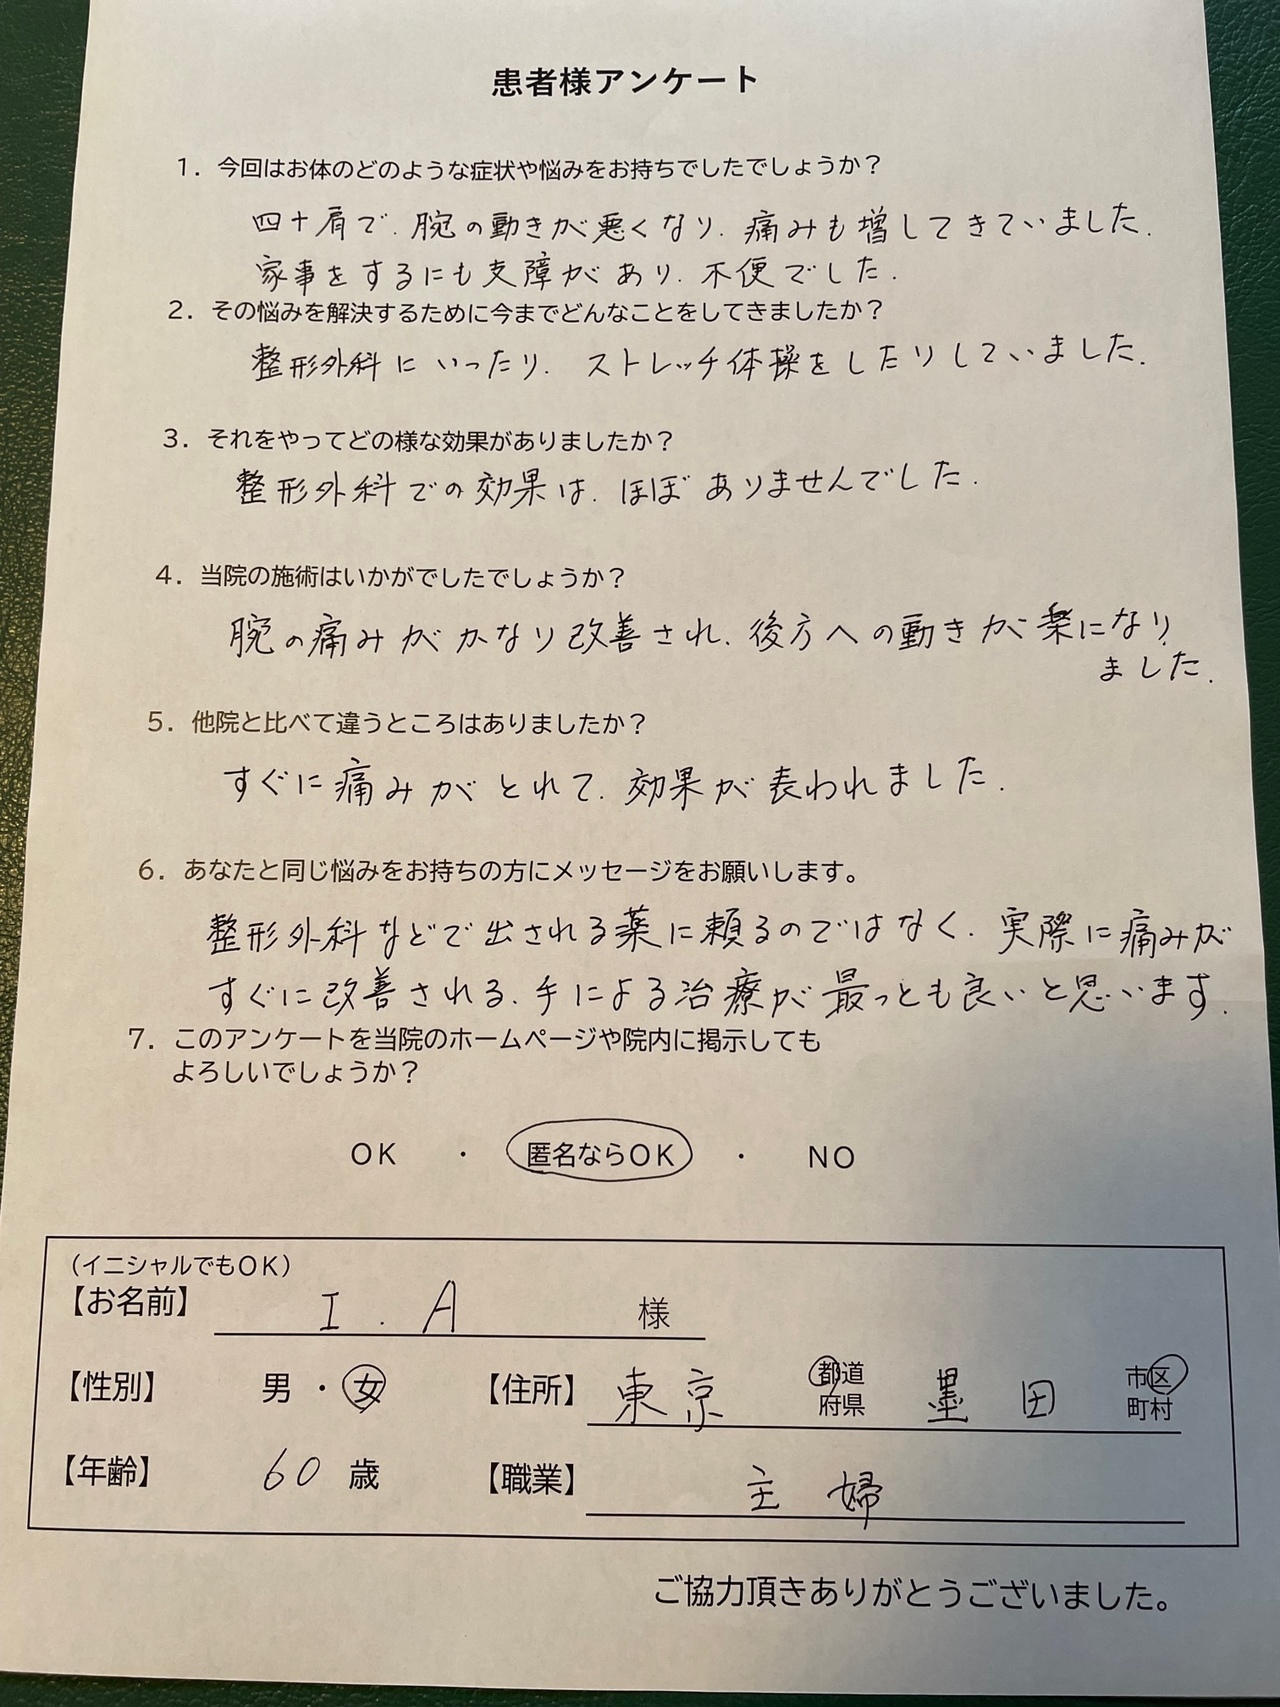 患者様アンケート
1．今回はお体のどのような症状や悩みをお持ちでしたでしょうか？
四十肩で、腕の動きが悪くなり、痛みも増してきていました。
家事をするにも支障があり、不便でした。
2．その悩みを解決するために今までどんなことをしてきましたか？
整形外科にいったり、ストレッチ体操をしたりしていました。
3．それをやってどの様な効果がありましたか？
整形外科での効果は、ほぼありませんでした。
4．当院の施術はいかがでしたでしょうか？
腕の痛みがかなり改善され、後方への動きが楽になり
ました。
5．他院と比べて違うところはありましたか？
すぐに痛みがとれて、効果が表われました。
6．あなたと同じ悩みをお持ちの方にメッセージをお願いします。
整形外科などで出される薬に頼るのではなく、実際に痛みが
すぐに改善される、手による治療が最っとも良いと思います。
7．このアンケートを当院のホームページや院内に掲示しても
よろしいでしょうか？
OK ・ 匿名ならOK ・ NO
（イニシャルでもOK）
【お名前】 I．A 様
【性別】 男・女 【住所】 東京 都道府県 墨田 市区町村
【年齢】 60 歳 【職業】 主婦
ご協力頂きありがとうございました。